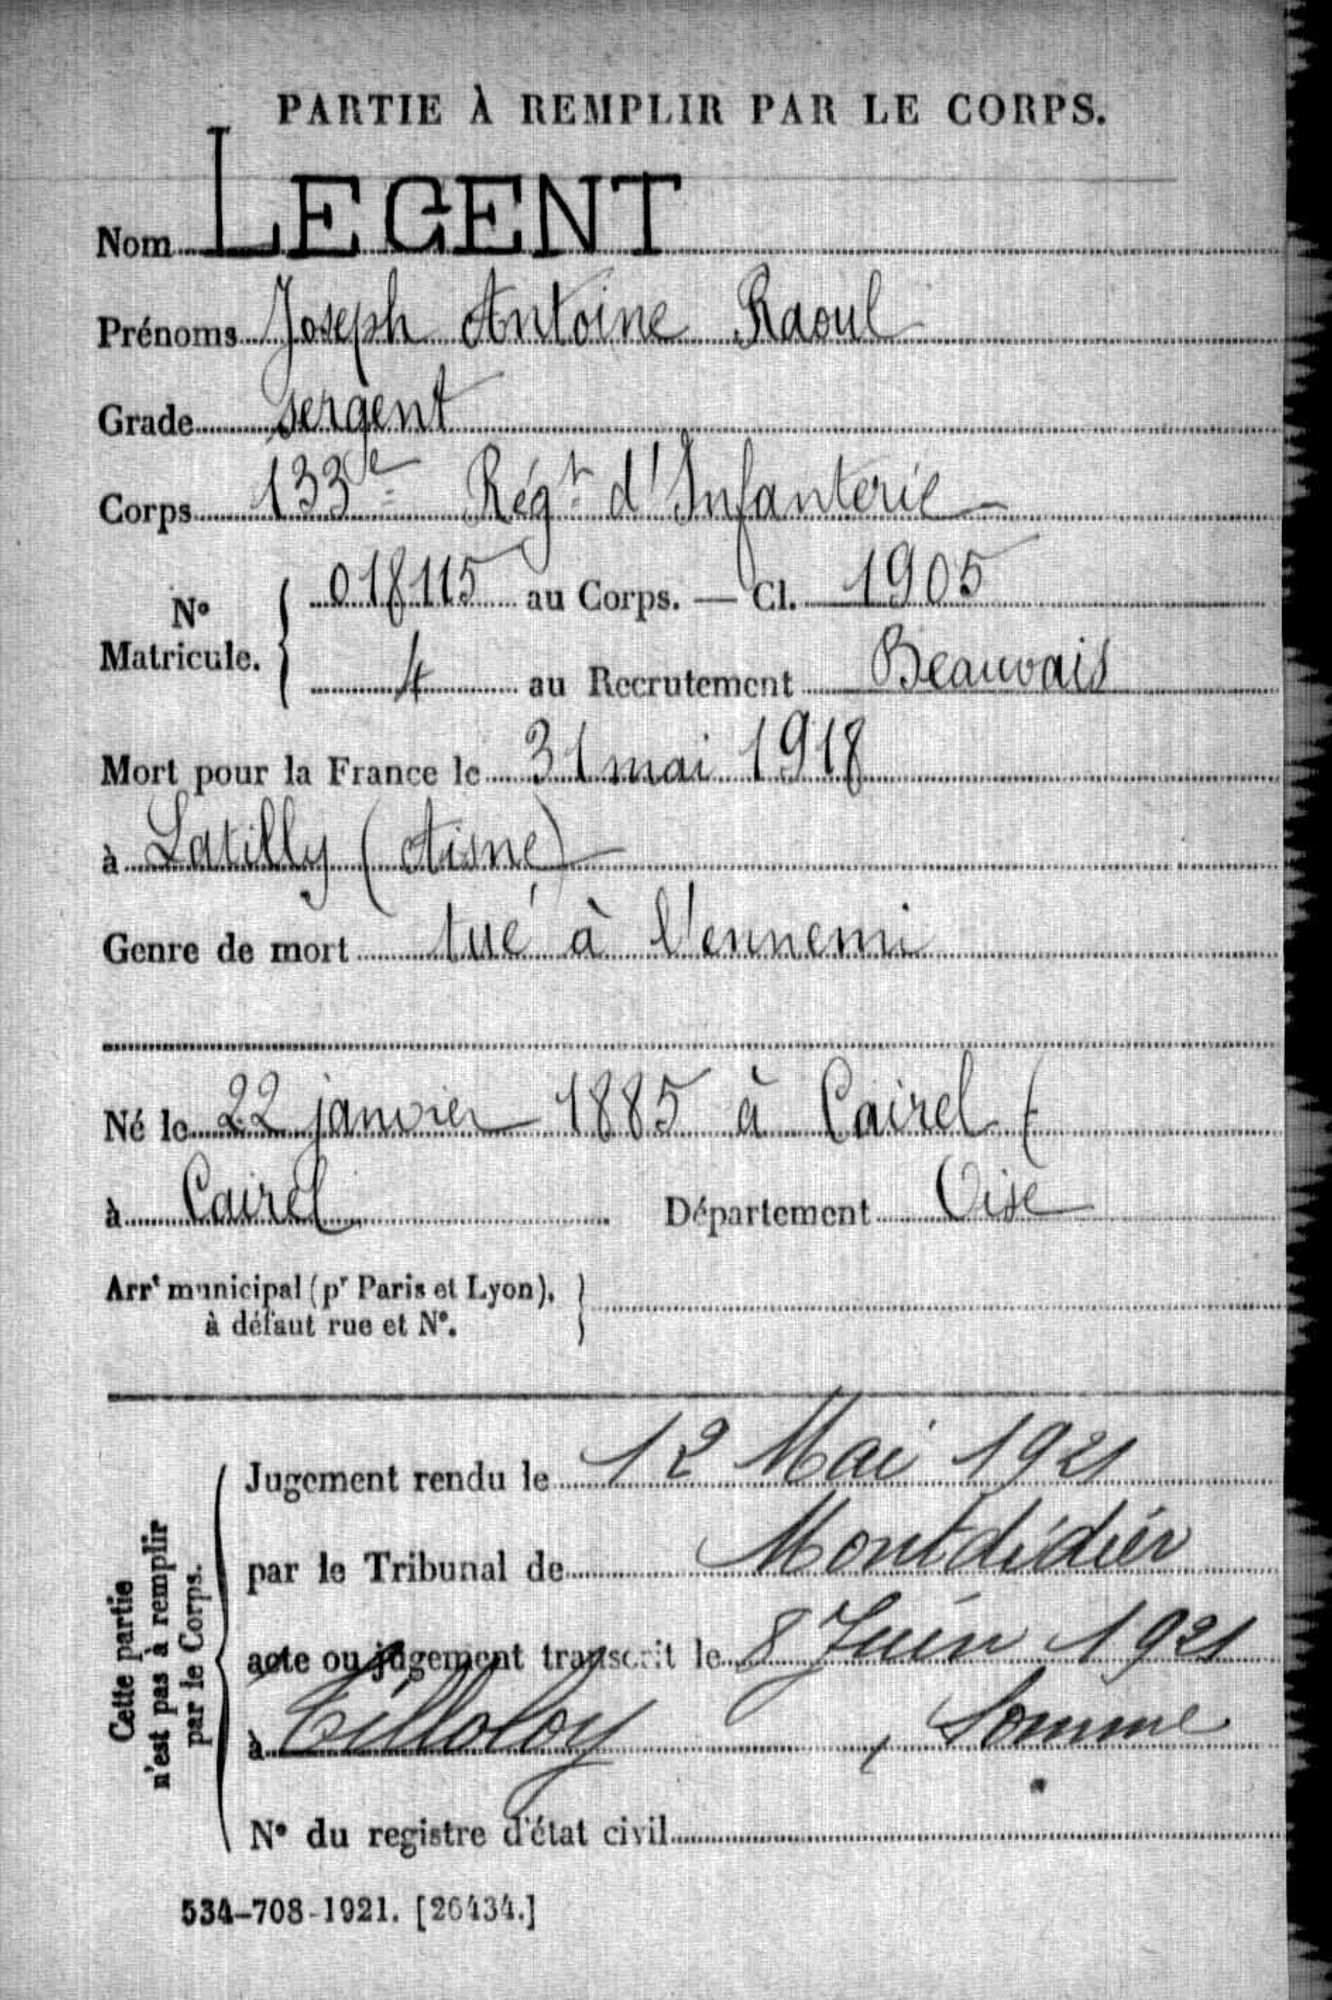 PARTIE À REMPLIR PAR LE CORPS.
Nom LEGENT
Prénoms Joseph Antoine Raoul
Grade sergent
Corps 133e Régt d'Infanterie
N° Matricule. { 018115 au Corps. — Cl. 1905
4 au Recrutement Beauvais
Mort pour la France le 31 mai 1918
à Latilly (Aisne)
Genre de mort tué à l'ennemi
Né le 22 janvier 1885 à Cairel (
à Cairel Département Oise
Arrt municipal (pr Paris et Lyon), }
à défaut rue et N°.
Cette partie
n'est pas à remplir
par le Corps.
Jugement rendu le 12 Mai 1921
par le Tribunal de Montdidier
acte ou jugement transcrit le 8 Juin 1921
à Tilloloy, Somme
N° du registre d'état civil
534-708-1921. [26434.]